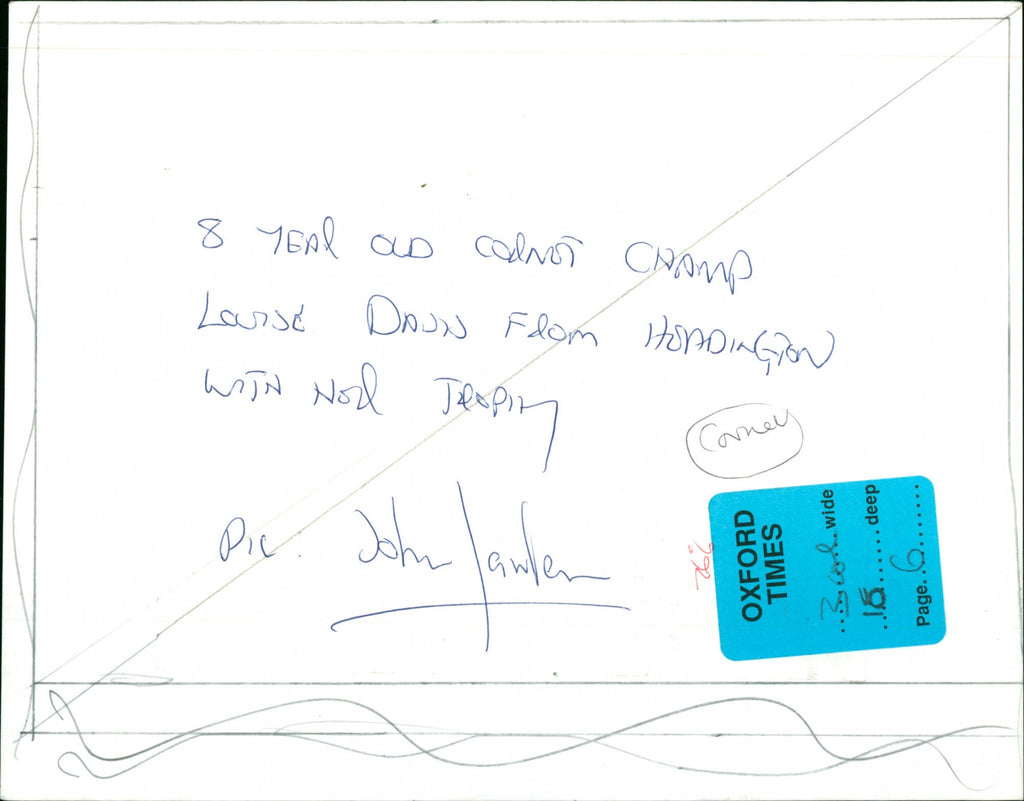 8 YEAR OLD CORNET CHAMP
LOUISE DAWN FROM HEADINGTON
WITH HER TROPHY
Cornet
Pic. John
OXFORD
TIMES
3 col wide
15 deep
Page 6
76%